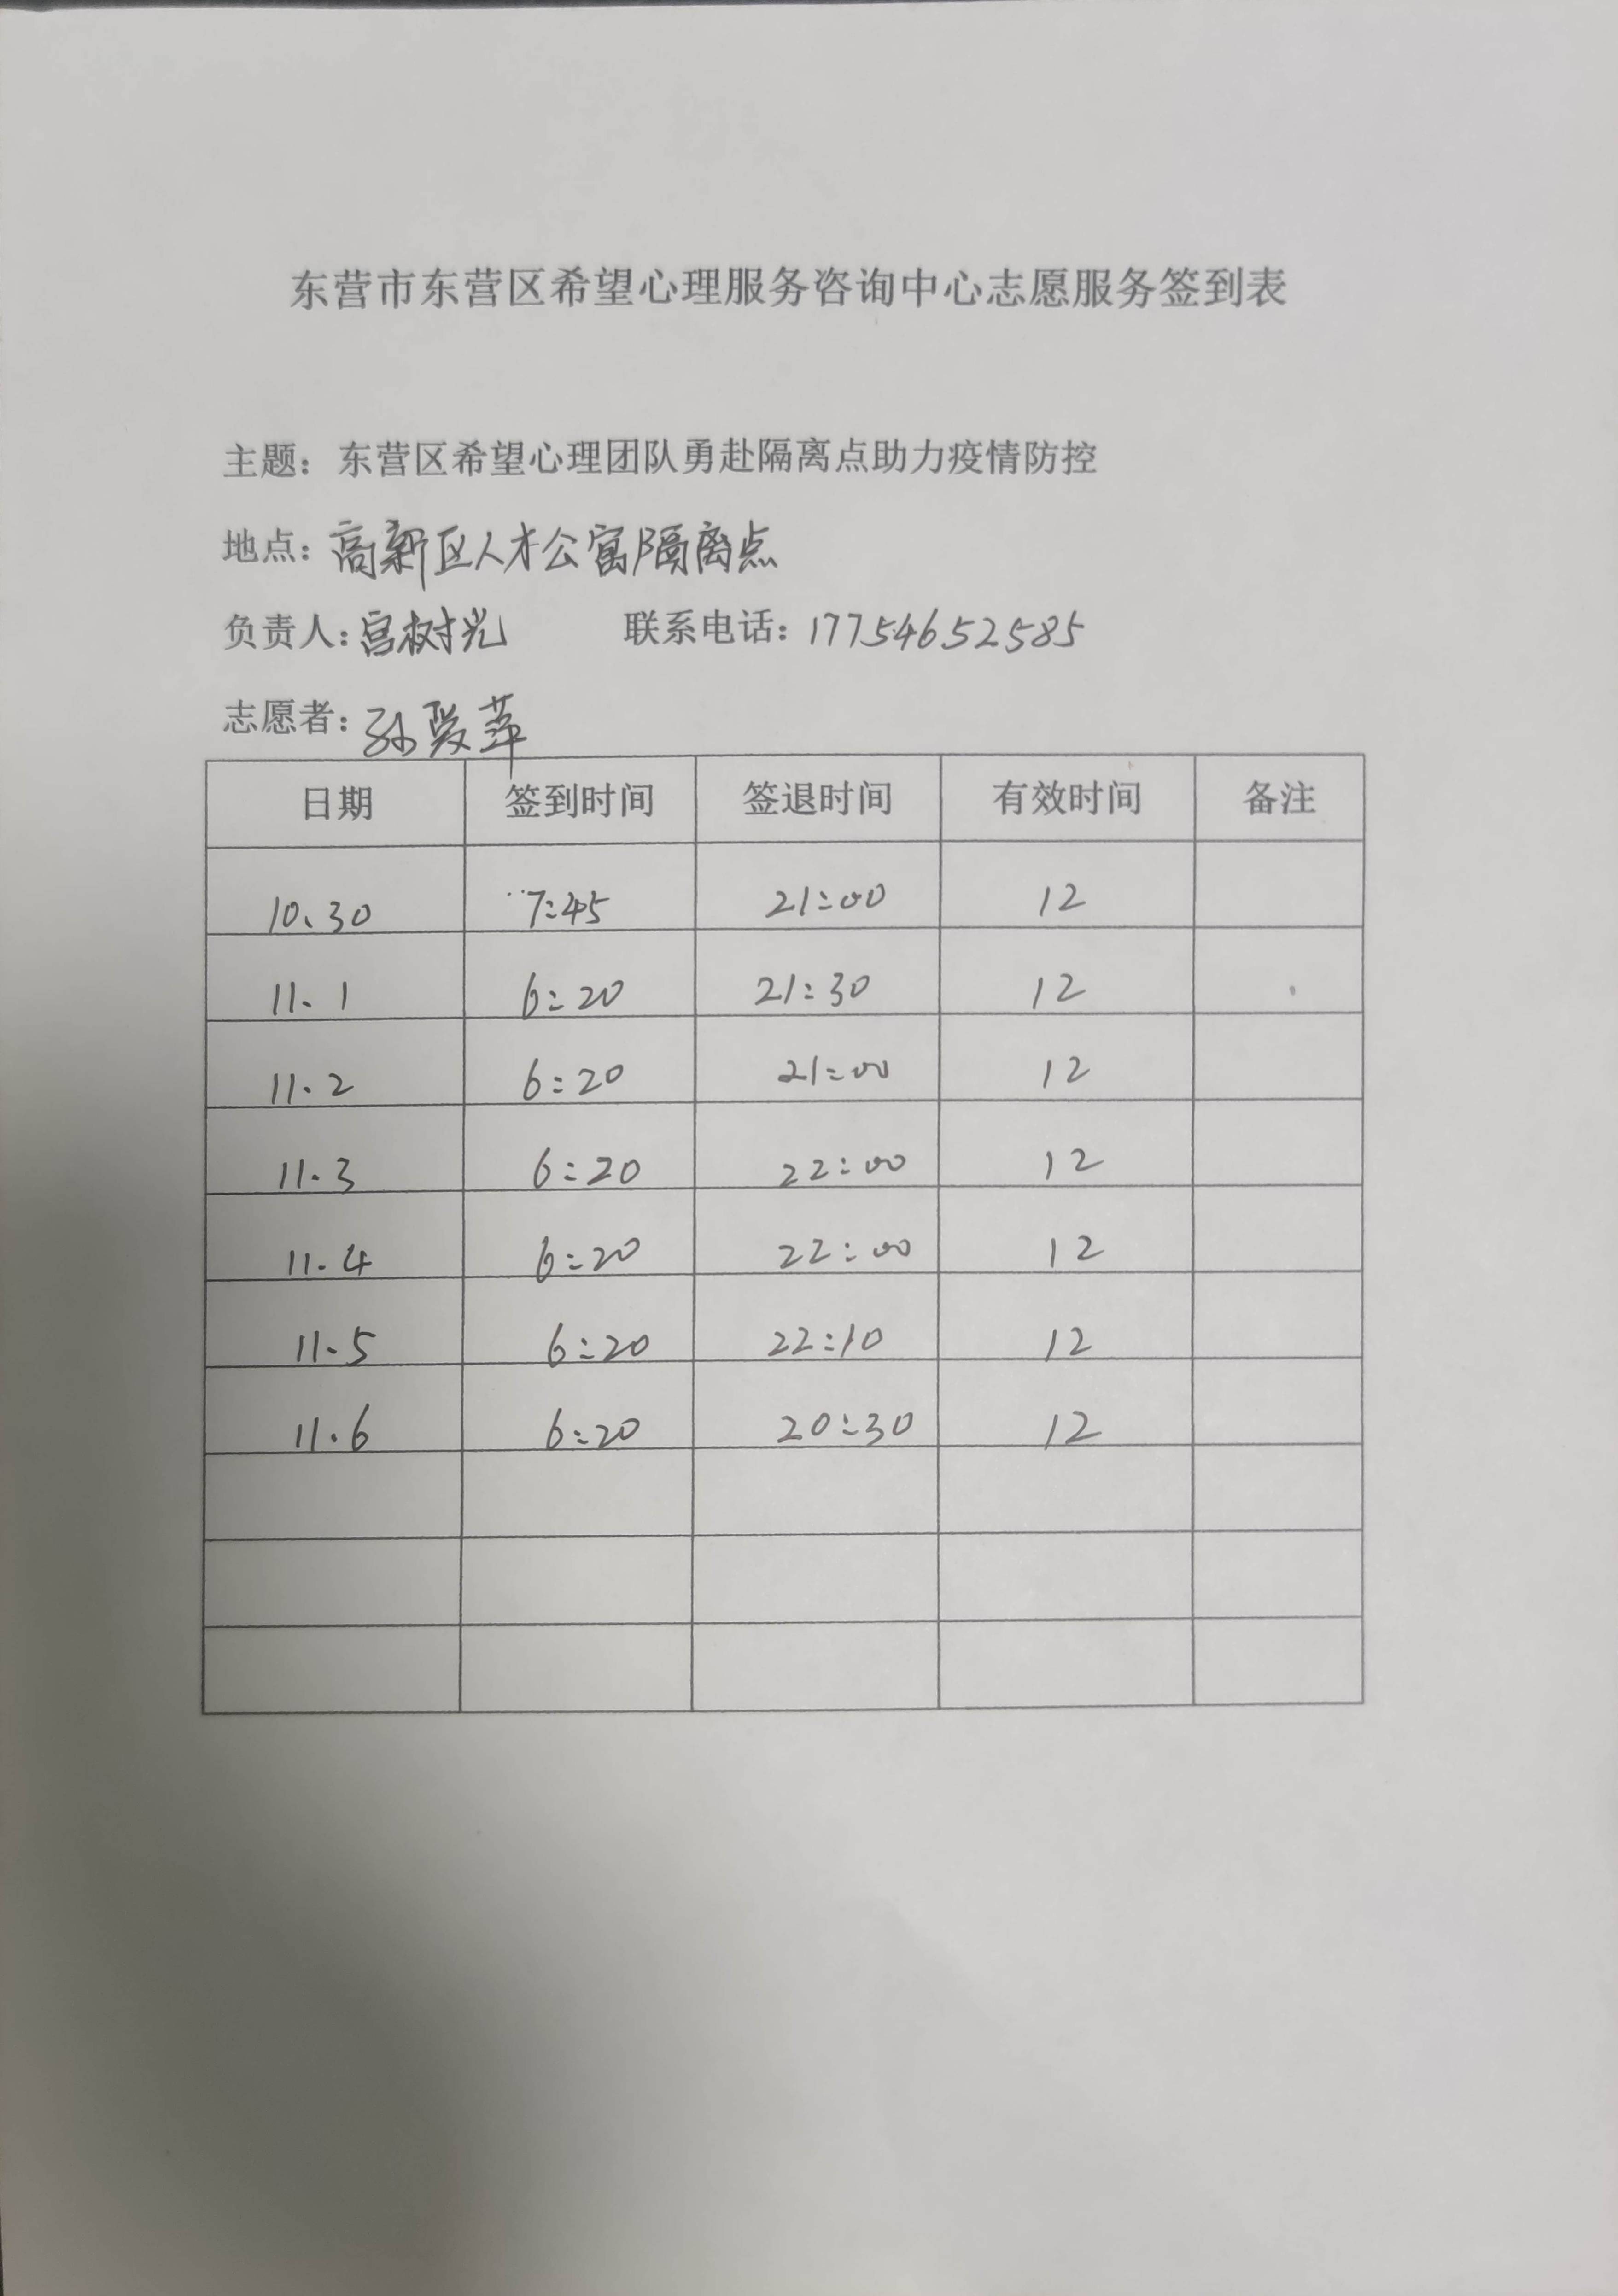 东营市东营区希望心理服务咨询中心志愿服务签到表
主题：东营区希望心理团队勇赴隔离点助力疫情防控
地点：高新区人才公寓隔离点
负责人：宫树光 联系电话：17754652585
志愿者：孙爱萍
日期 签到时间 签退时间 有效时间 备注
10、30 7:45 21:00 12
11、1 6:20 21:30 12
11、2 6:20 21:00 12
11、3 6:20 22:00 12
11、4 6:20 22:00 12
11、5 6:20 22:10 12
11、6 6:20 20:30 12